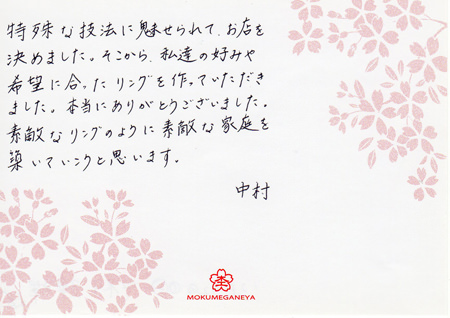 特殊な技法に魅せられて、お店を
決めました。そこから、私達の好みや
希望に合ったリングを作っていただき
ました。本当にありがとうございました。
素敵なリングのように素敵な家庭を
築いていこうと思います。
中村
MOKUMEGANEYA